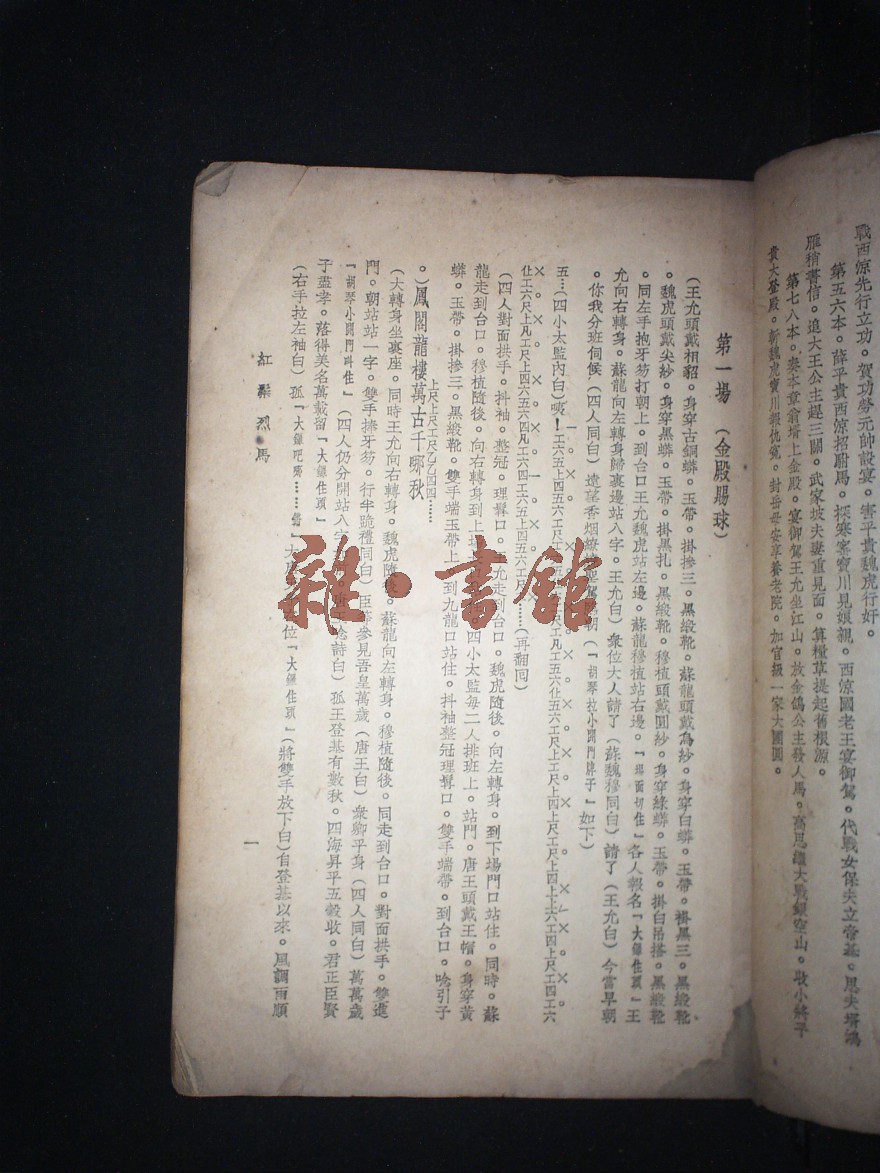 戰西涼先行立功。賀功勞元帥設宴。害平貴魏虎行奸。
第五六本。薛平貴西涼招駙馬。探寒窰寶川見娘親。西涼國老王宴御駕。代戰女保夫立帝基。思夫壻鴻
雁稍書信。追大王公主趕三關。武家坡夫妻重見面。算糧草提起舊根源。
第七八本。奏本章俞壻上金殿。宴御駕王允坐江山。放金鴿公主發人馬。高思繼大戰銀空山。收小將子
貴大登殿。斬魏虎寶川報仇寃。封岳母安享養老院。加官級一家大團圓。
第一場（金殿賜球）
（王允頭戴相貂。身穿古銅蟒。玉帶。掛摻三。黑緞靴。蘇龍頭戴烏紗。身穿白蟒。玉帶。掛黑三。黑緞靴
。魏虎頭戴尖紗。身穿黑蟒。玉帶。掛黑扎。黑緞靴。穆植頭戴圓紗。身穿綠蟒。玉帶。掛白吊搭。黑緞靴
。同左手抱牙笏打朝上。到台口王允魏虎站左邊。蘇龍穆植站右邊。『場面切住』各人報名『大鑼住頭』王
允向右轉身。蘇龍向左轉身歸裏邊站八字。王允白）衆位大人請了（蘇魏穆同白）請了（王允白）今當早朝
。你我分班伺候（四人同白）遠望香烟繚 聖駕 朝（『胡琴拉小開門牌子』如下）
五…（四小太監內白）咦！
（再翻同）
（四人對面拱手。抖袖。整冠。理髯口。王允走到台口。魏虎隨後。向左轉身。到下場門口站住。同時。蘇
龍走到台口。穆植隨後。向右轉身到上場 四小太監每二人排班上。站門。唐王頭戴王帽。身穿黃
蟒。玉帶。掛摻三。黑緞靴。雙手端玉帶上 到九龍口站住。抖袖整冠理髯口。雙手端帶。到台口。唸引子
。）鳳閣龍樓萬古千 秋
上尺上尺工尺乙乙四四……
（大轉身坐裏座。同時王允向右轉身。魏虎隨後。蘇龍向左轉身。穆植隨後。同走到台口。對面拱手。雙進
門。朝站站一字。雙手捧牙笏。行半跪禮同白）臣等參見吾皇萬歲（唐王白）衆卿平身（四人同白）萬萬歲
『胡琴小開門叫住』（四人仍分開站八 唐王唸詩白）孤王登基有數秋。四海昇平五穀收。君正臣賢
子盡孝。落得美名萬載留『大鑼住頭』
（右手拉左袖白）孤『大鑼吧 ……倉』大 位『大鑼住頭』（將雙手放下白）自登基以來。風調雨順
紅鬃烈馬
一
雜·書館